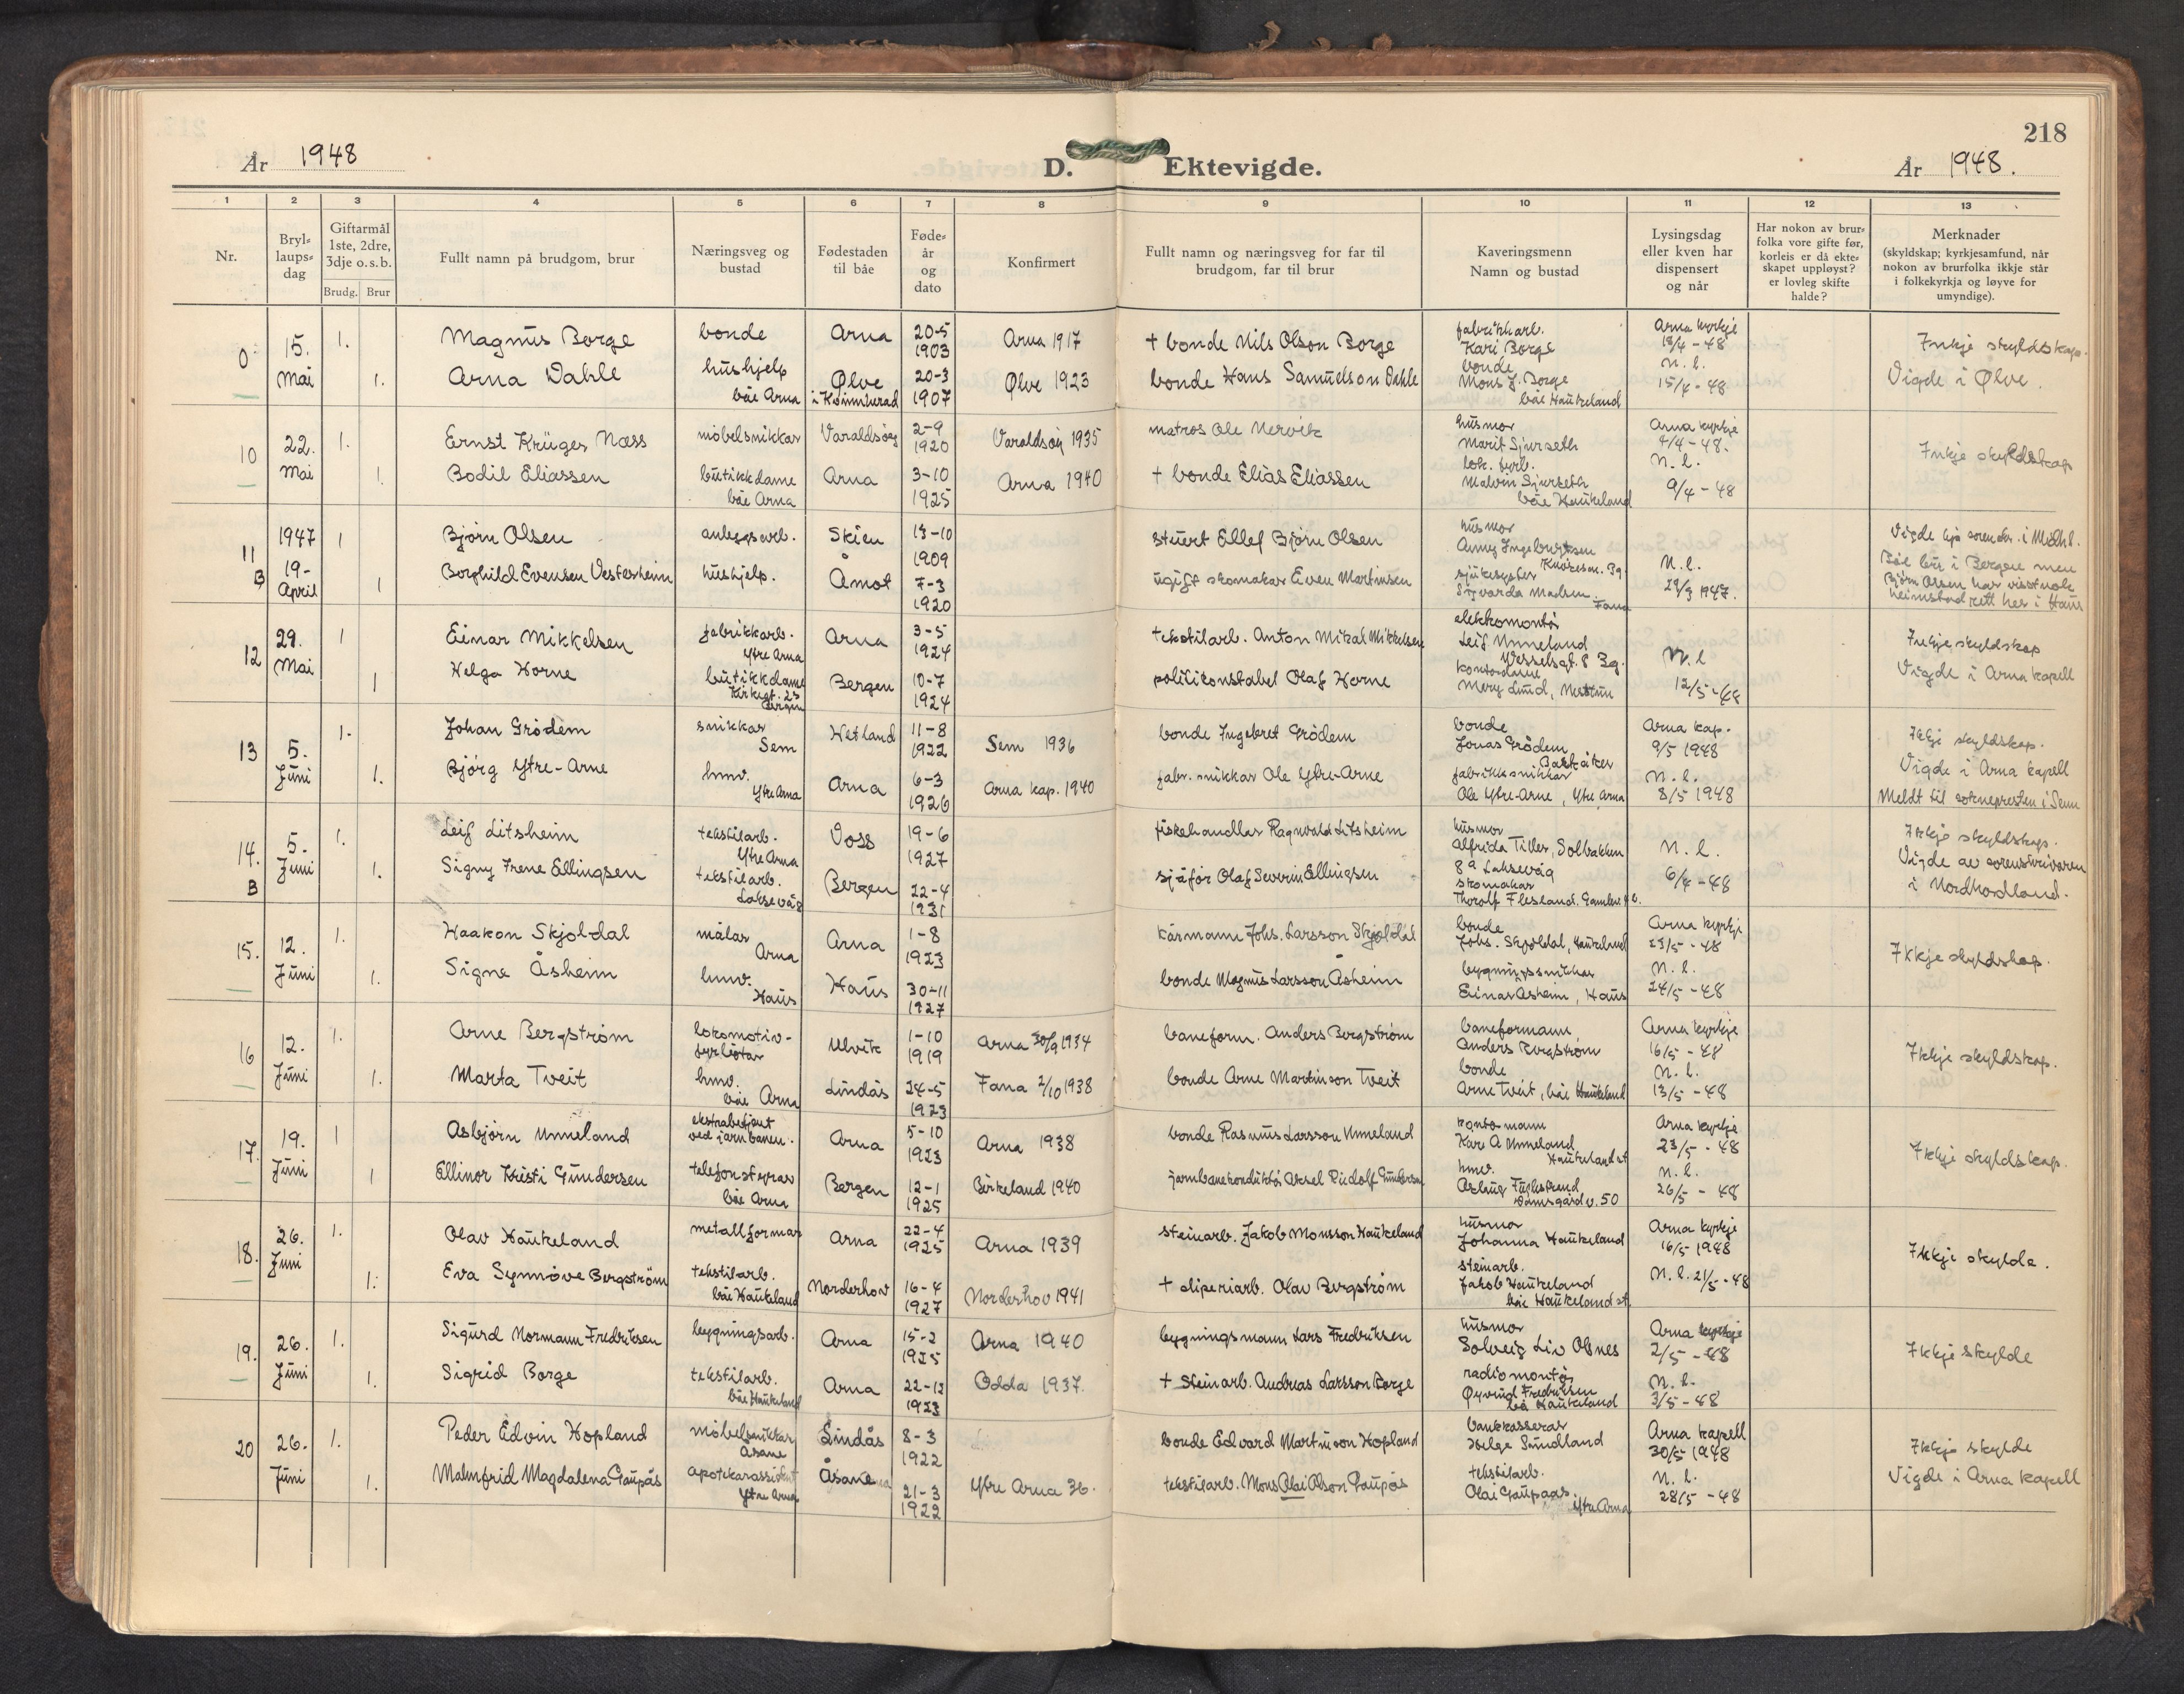 218
År 1948 D. Ektevigde. År 1948.
1 2 3 4 5 6 7 8 9 10 11 12 13
Nr.
Bryl-
laups-
dag
Giftarmål
1ste, 2dre,
3dje o.s.b.
Brudg. Brur
Fullt namn på brudgom, brur
Næringsveg og
bustad
Fødestaden
til båe
Føde-
år
og
dato
Konfirmert
Fullt namn og næringsveg for far til
brudgom, far til brur
Kaveringsmenn
Namn og bustad
Lysingsdag
eller kven har
dispensert
og når
Har nokon av brur-
folka vore gifte før,
korleis er då ekte-
skapet uppløyst?
er lovleg skifte
halde?
Merknader
(skyldskap; kyrkjesamfund, når
nokon av brurfolka ikkje står
i folkekyrkja og løyve for
umyndige).
15.
Mai
1.
1.
Magnus Borge
Arna Dahle
bonde
hushjelp
båe Arna
Arna
Ølve
i Kvinnherad
20-5
1903
20-3
1907
Arna 1917
Ølve 1923
+ bonde Nils Olson Borge
bonde Hans Samuelson Dahle
fabrikkarb.
Kari Borge
bonde
Mons J. Borge
båe Haukeland
Arna kyrkje
18/4 - 48
n. l.
15/4 - 48
Inkje skyldskap.
Vigde i Ølve.
10
22.
Mai
1.
1.
Ernst Krüger Næss
Bodil Eliassen
møbelsnikkar
butikkdame
båe Arna
Varaldsøy
Arna
2-9
1920
3-10
1925
Varaldsøy 1935
Arna 1940
matros Ole Nervik
+ bonde Elias Eliassen
husmor
Marit Sjurseth
lok. fyrb.
Malvin Sjurseth
båe Haukeland
Arna kyrkje
4/4 - 48.
n. l.
9/4 - 48
Inkje skyldskap
11
B
1947
19-
April
1
1
Bjørn Olsen
Borghild Evensen Vesterheim
anleggsarb.
hushjelp.
Skien
Åmot
13-10
1909
7-3
1920
stuert Ellef Bjørn Olsen
ugift skomakar Even Martinsen
husmor
Anny Ingebrigtsen
sjukesyster
Sigvarda Madsen
Fana
n. l.
29/3 1947.
Vigde hjå sorenskr. i Midhl.
Båe bur i Bergen men
Bjørn Olsen har visstnok
heimstadrett her i Haus
12
29.
Mai
1
1
Einar Mikkelsen
Helga Horne
fabrikkarb.
Ytre Arna
butikkdame
Kirkegt. 23
Bergen
Arna
Bergen
3-5
1924
10-7
1924
tekstilarb. Anton Mikal Mikkelsen
politikonstabel Olaf Horne
elekkomontør
Leif Unneland
Wesselsgt. 8 Bg.
kontordame
Mery Lund, Nesttun
n. l
12/5 - 48
Inkje skyldskap
Vigde i Arna kapell
13
5.
Juni
1.
1.
Johan Grødem
Bjørg Ytre-Arne
snikkar
Sem
hmv.
Ytre Arna
Hetland
Arna
11-8
1922
6-3
1926
Sem 1936
Arna kap. 1940
bonde Ingebret Grødem
fabr. snikkar Ole Ytre-Arne
bonde
Jonas Grødem
fabrikksnikkar
Ole Ytre-Arne, Ytre Arna
Arna kap.
9/5 1948
n. l.
8/5 1948
Ikkje skyldskap.
Vigde i Arna kapell
Meldt til soknepresten i Sem
14.
B
5.
Juni
1.
1.
Leif Litsheim
Signy Irene Ellingsen
tekstilarb.
Ytre Arna
tekstilarb.
Laksevåg
Voss
Bergen
19-6
1927
22-4
1931
fiskehandlar Ragnvald Litsheim
sjåfør Olaf Severin Ellingsen
husmor
Alfrida Tiller, Solbakken
89 Laksevåg
skomakar
Thoralf Flesland.
n. l.
6/4 - 48
Ikkje skyldskap.
Vigde av sorenskrivaren
i Nordhordland.
15.
12.
Juni
1.
1.
Haakon Skjoldal
Signe Åsheim
målar
Arna
hmv.
Haus
Arna
Haus
1-8
1923
30-11
1927
kårmann Johs. Larsson Skjoldal
bonde Magnus Larsson Åsheim
bonde
Johs. Skjoldal, Haukeland
bygningssnikkar
Einar Åsheim, Haus
Arna kyrkje
23/5 - 48
n. l.
24/5 - 48
Ikkje skyldskap.
16
12.
Juni
1.
1.
Arne Bergstrøm
Marta Tveit
lokomotiv-
fyrbøtar
hmv.
båe Arna
Ulvik
Lindås
1-10
1919
24-5
1923
Arna 30/9 1934
Fana 2/10 1938
baneform. Anders Bergstrøm
bonde Arne Martinson Tveit
baneformann
Anders Bergstrøm
bonde
Arne Tveit, båe Haukeland
Arna kyrkje
16/5 - 48
n. l.
13/5 - 48
Ikkje skyldskap.
17.
19.
Juni
1
1
Asbjørn Unneland
Ellinor Kristi Gundersen
ekstrabetjent
ved jarnbanen.
telefonstyrar
båe Arna
Arna
Bergen
5-10
1923
12-1
1925
Arna 1938
Birkeland 1940
bonde Rasmus Larsson Unneland
jarnbanekonduktør Aksel Rudolf Gundersen
kontormann
Kåre A Unneland
Haukeland st
hmv.
Aslaug
Damsgård v. 50
Arna kyrkje
23/5 - 48
n. l.
26/5 - 48
Ikkje skyldskap.
18.
26.
Juni
1.
1.
Olav Haukeland
Eva Synnøve Bergstrøm
metallformar
tekstilarb.
båe Haukeland
Arna
Norderhov
22-4
1925
16-4
1927
Arna 1939
Norderhov 1941
steinarb. Jakob Monsson Haukeland
+ sliperiarb. Olav Bergstrøm
husmor
Johanna Haukeland
steinarb.
Jakob Haukeland
båe Haukeland st.
Arna kyrkje
16/5 1948
n. l. 21/5 - 48
Ikkje skylde.
19.
26.
Juni
1.
1.
Sigurd Normann Fredriksen
Sigrid Borge
bygningsarb.
tekstilarb.
båe Haukeland
Arna
Arna
15-2
1925
22-12
1923
Arna 1940
Odda 1937.
bygningsmann Lars Fredriksen
+ Steinarb. Andreas Larsson Borge
husmor
Solveig Liv Olsnes
radiomontør
Øyvind Fredriksen
båe Haukeland
Arna kyrkje
2/5 - 48
n. l.
3/5 - 48
Ikkje skylde
20
26.
Juni
1.
1.
Peder Edvin Hopland
Malmfrid Magdalena Gaupås
møbelsnikkar
Åsane
apotekarassistent
Ytre Arna
Lindås
Åsane
8-3
1922
21-3
1922
Ytre Arna 36.
bonde Edvard Martinson Hopland
tekstilarb. Mons Olai Olson Gaupås
bankkasserar
Helge Sundland
tekstilarb.
Olai Gaupaas
Ytre Arna
Arna kapell
30/5 1948
n. l.
28/5 - 48
Ikkje skylde
Vigde i Arna kapell